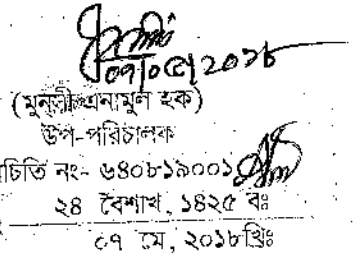 ০৭/০৫/২০১৮
(মুনসী এনামুল হক)
উপ-পরিচালক
চিতি নং- ৬৪০৮১৯০০১
২৪ বৈশাখ, ১৪২৫ বঃ
০৭ মে, ২০১৮খ্রিঃ